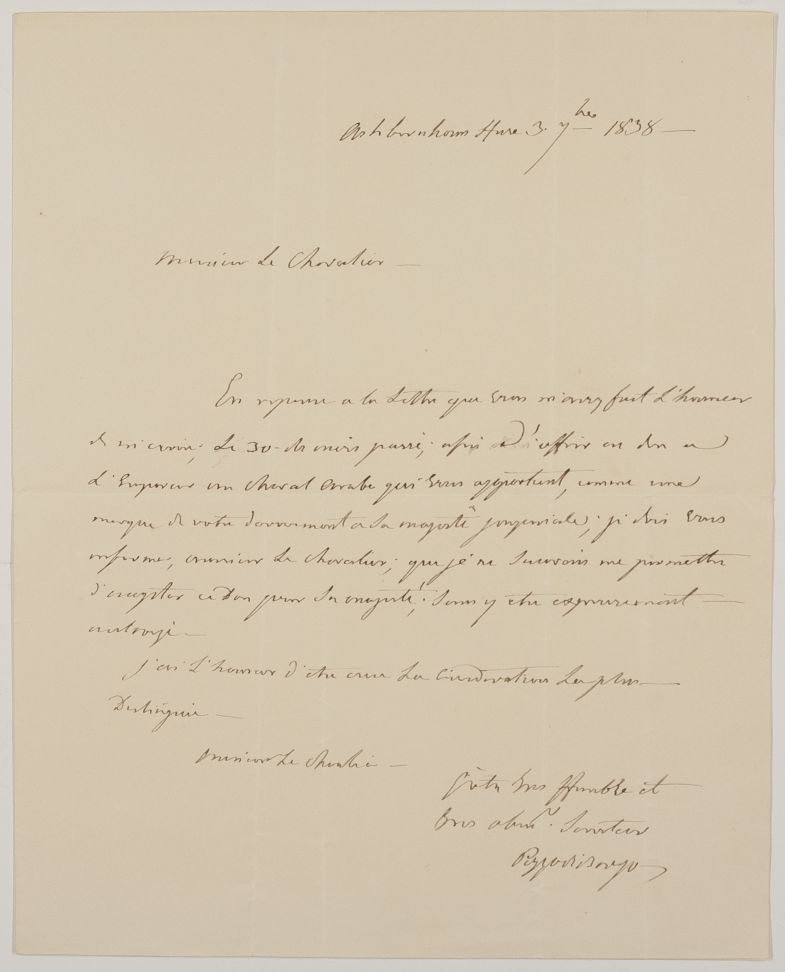 Ashburnham House 3. 7bre 1838 —
Monsieur Le Chevalier —
En reponse a la Lettre que Vous m'avez fait L'honneur
de m'ecrire, Le 30 du mois passé; afin d'offrir en don a
L'Empereur un cheval arabe qui Vous appartient, comme une
marque de votre devouement a Sa majesté Imperiale; je dois Vous
informer, monsieur Le Chevalier; que je ne Saurois me permettre
d'accepter ce Don pour Sa majesté; Sans y etre expressement —
autorisé —
J'ai L'honneur d'etre avec La Consideration La plus —
Distinguée —
Monsieur Le Chevalier —
Votre tres Humble et
tres obeist. Serviteur
Pozzo di Borgo